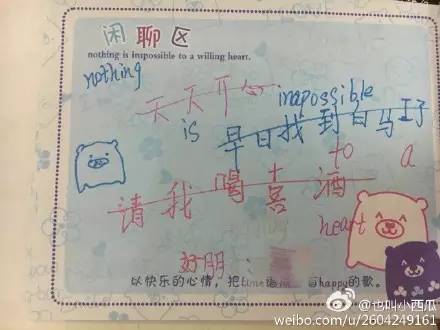 闲聊区
nothing is impossible to a willing heart.
nothing
天天开心 impossible
is 早日找到白马王子
to a
请我喝喜酒
heart
好朋
以快乐的心情，把time
happy的歌。
@也叫小西瓜
weibo.com/u/2604249161